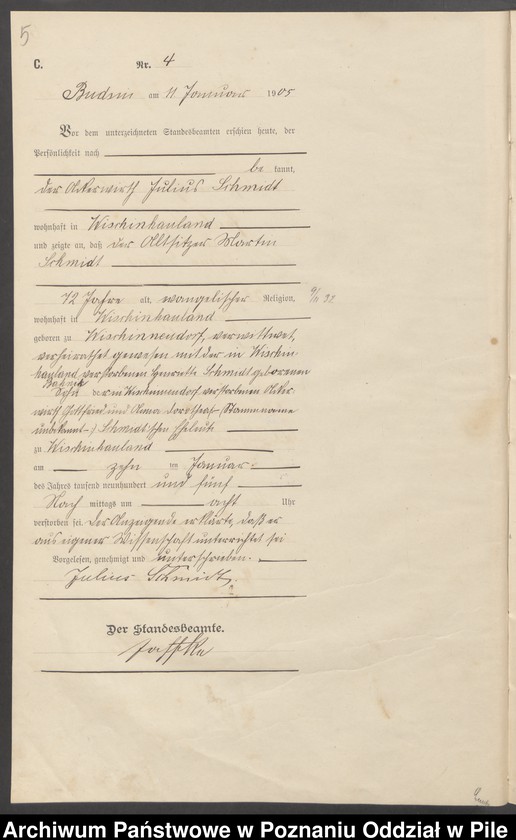 5
C. Nr. 4
Budsin am 11 Januar 1905
Vor dem unterzeichneten Standesbeamten erschien heute, der
Persönlichkeit nach
be kannt,
der Ackerwirth Julius Schmidt
wohnhaft in Wischinhauland
und zeigte an, daß der Altsitzer Martin
Schmidt
72 Jahre alt, evangelischer Religion,
wohnhaft in Wischinhauland
geboren zu Wischinneudorf, verwittwet,
verheirathet gewesen mit der in Wischin-
hauland verstorbenen Henriette Schmidt geborenen
Sohn der in Wischinneudorf verstorbenen Acker-
wirth Gottfried und Anna Dorothea (Stammname
unbekannt) Schmidt'schen Eheleute
zu Wischinhauland
am zehn ten Januar
des Jahres tausend neunhundert und fünf
Nach mittags um acht Uhr
verstorben sei. Der Anzeigende erklärte, daß er
aus eigener Wissenschaft unterrichtet sei
Vorgelesen, genehmigt und unterschrieben.
Julius Schmidt.
Der Standesbeamte.
Archiwum Państwowe w Poznaniu Oddział w Pile